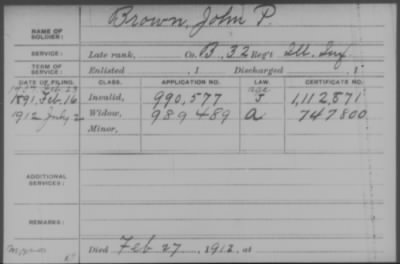 Brown, John P.
NAME OF SOLDIER:
SERVICE: Late rank, Co. B, 32 Reg't Ill. Inf.
TERM OF SERVICE: Enlisted , 1 Discharged , 1
DATE OF FILING. CLASS. APPLICATION NO. LAW. CERTIFICATE NO.
age
1891 Feb. 16 Invalid, 990,577 J 1,112,871
1912 July 2 Widow, 989489 a 747800
Minor,
ADDITIONAL SERVICES:
REMARKS:
Died Feb 27, 1912, at